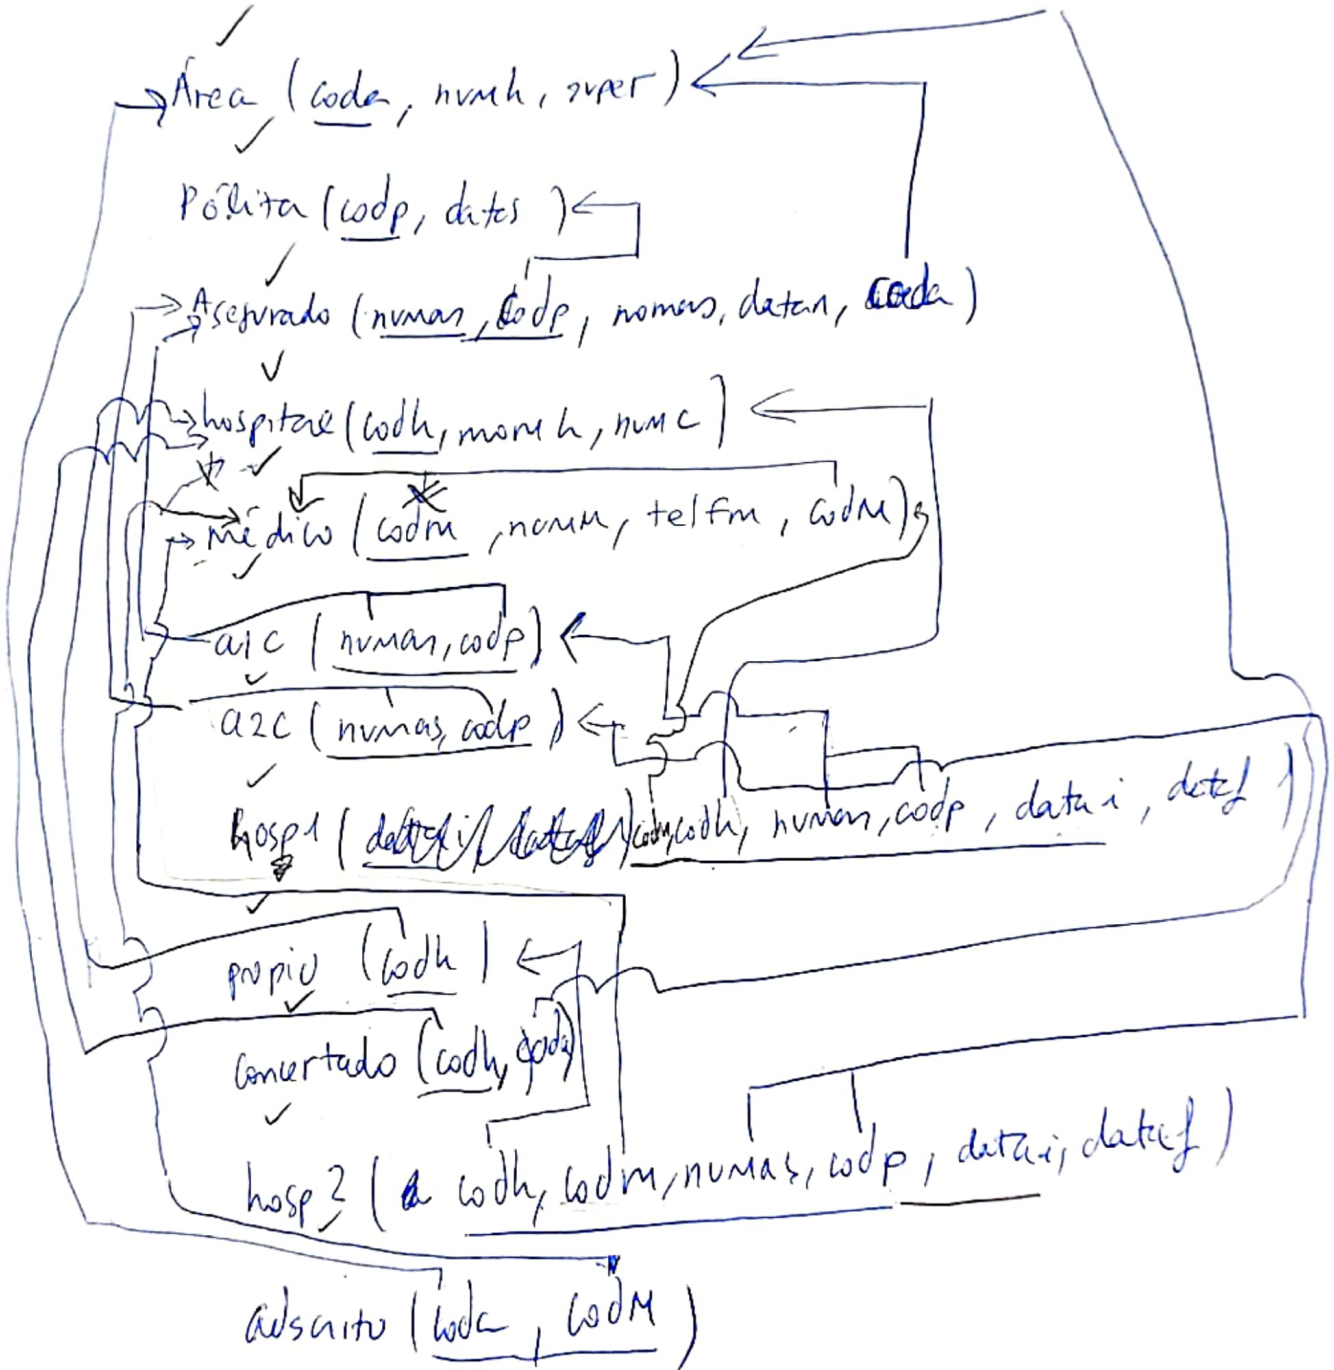 Área (coda, numh, super)
Póliza (codp, datos)
Asegurado (numas, codp, nomas, datan, coda)
hospital (codh, nomh, numc)
médico (codm, nomm, telfm, codM)
a1c (numas, codp)
a2c (numas, codp)
hosp1 (codm, codh, numas, codp, datai, dataf)
propio (codh)
concertado (codh, coda)
hosp2 (codh, codm, numas, codp, datai, dataf)
adscrito (coda, codM)